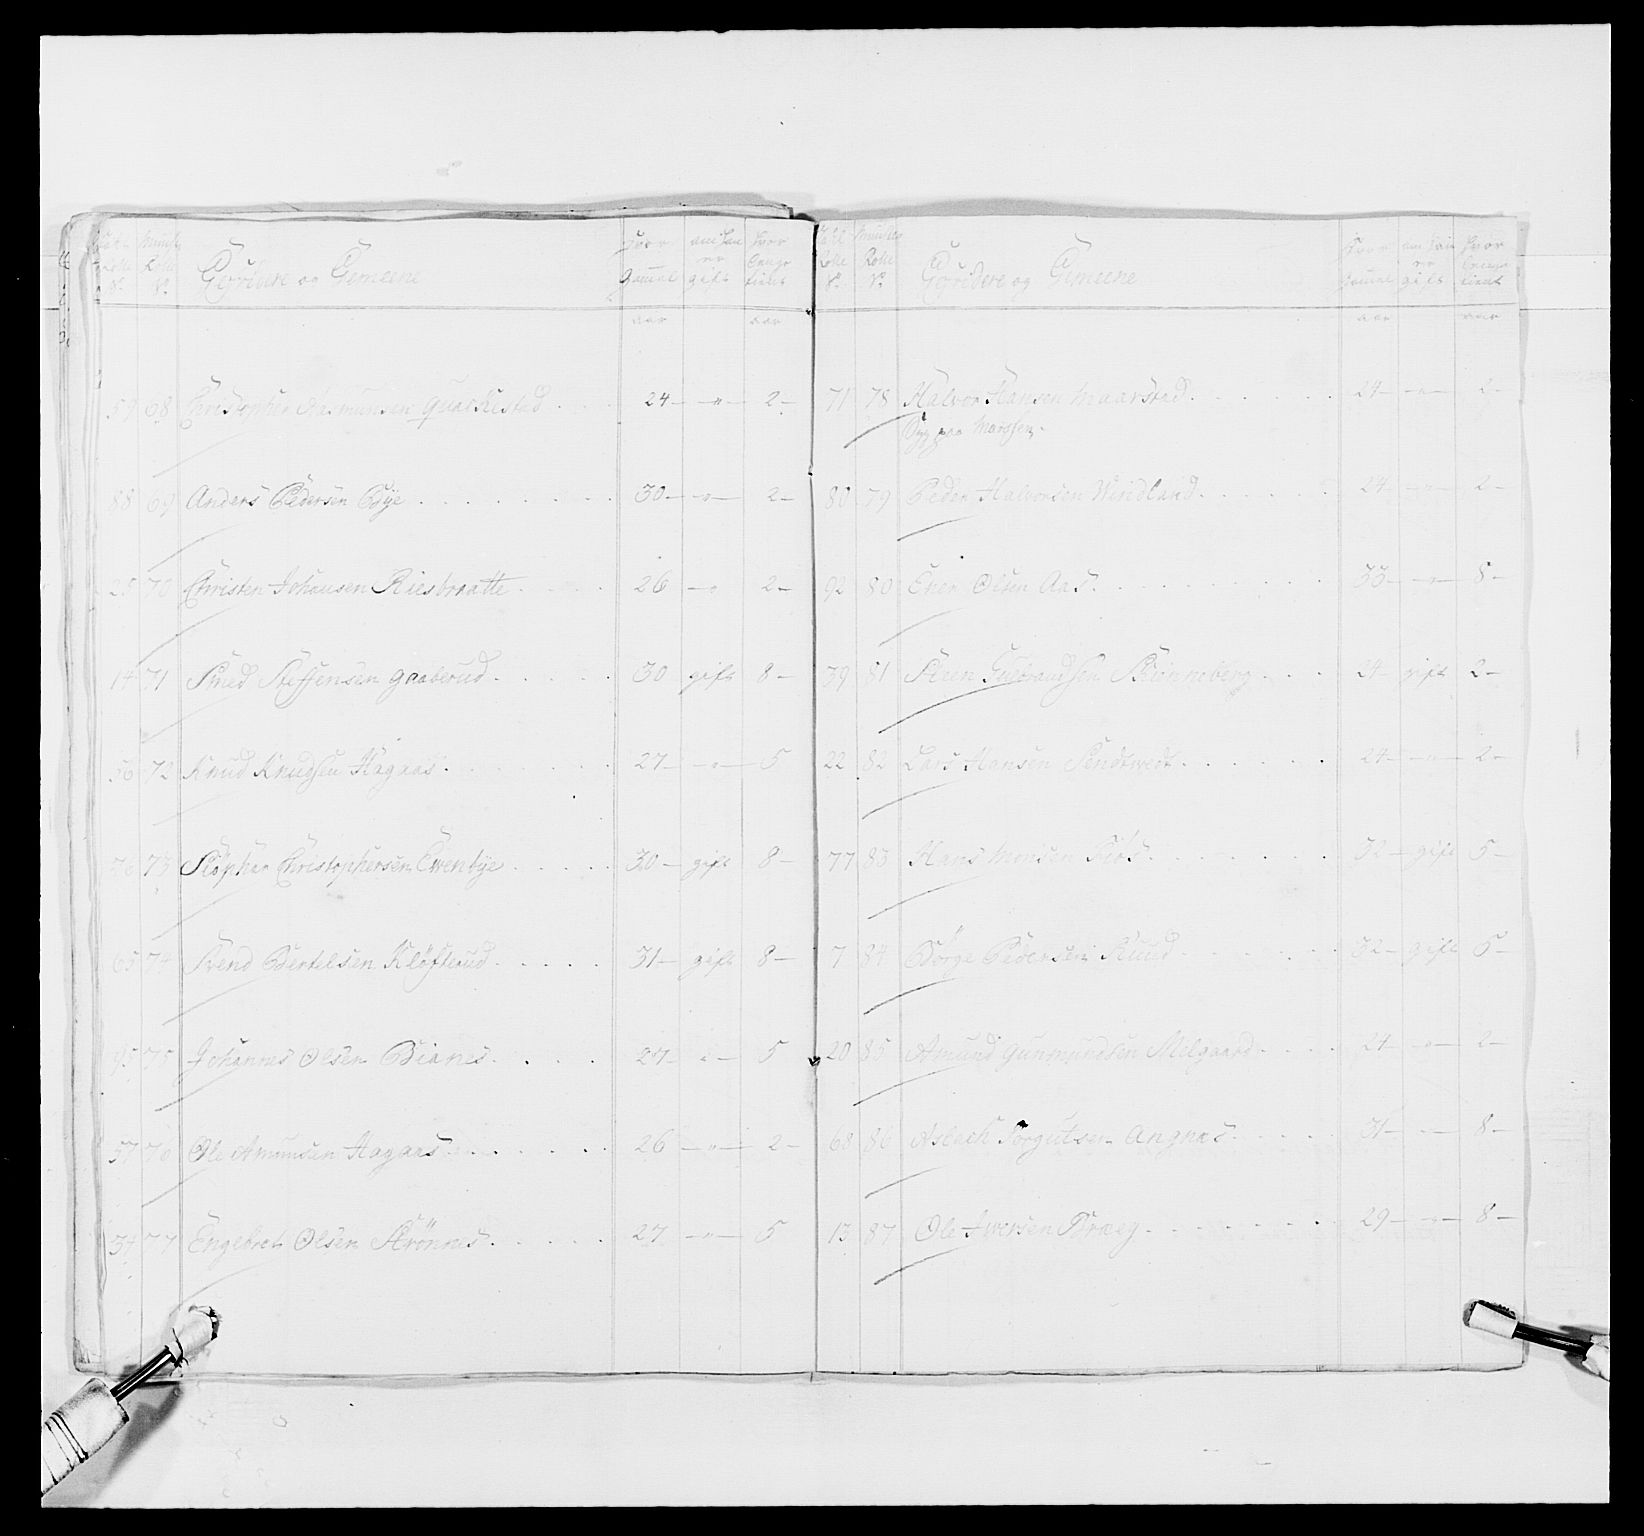 Rolle Rolle Gefridere og Gemeene Gammel gift tient
No No
aar aar
59 68 Christopher Rasmunsen Quaskestad 24 — " — 2 —
88 69 Anders Pedersen Bÿe 30 — " — 2 —
25 70 Christen Johansen Riesbraatte 26 — " 2 —
14 71 Smed Steffensen Gaaberud 30 gift 8 —
56 72 Knud Knudsen Hagaas 27 — " — 5
76 73 Stopher Christophersen Ewenbÿe 30 — gift 8 —
65 74 Svend Bertelsen Klöfterud 31 — gift 8 —
45 75 Johannes Olsen Bianes 27 — " — 5
57 76 Ole Amunsen Hagaas 26 — " — 2 —
34 77 Engebret Olsen Strönnes 27 — " — 5
Rolle Rolle Gefridere og Gemeene Gammel gift tient
No No
aar aar
71 78 Halvor Hansen Maarstad 24 — " — 2 —
Syg paa Marssen
80 79 Peder Halvorsen Windland 24 — " — 2 —
92 80 Even Olsen Aas 33 — " — 8 —
39 81 Steen Gulbrandsen 24 — gift 2 —
22 82 Lars Hansen Sendtwedt 24 — " — 2 —
77 83 Hans Monsen Fiös 32 — gift 5 —
7 84 Börge Pedersen Ruud 32 — gift 5 —
20 85 Amund Gunmundsen Milgaard 24 — " — 2 —
68 86 Aslach Torgutsen Angnas 31 — — 8 —
13 87 Ole Iversen Braeg 29 — " — 8 —